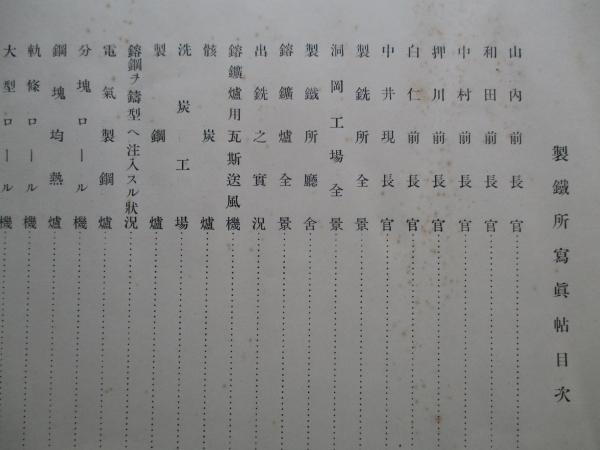 製鐵所寫眞帖目次
山內前長官
和田前長官
中村前長官
押川前長官
白仁前長官
中井現長官
製銑所全景
洞岡工場全景
製鐵所廳舍
鎔鑛爐全景
出銑之實況
鎔鑛爐用瓦斯送風機
骸炭爐
洗炭工場
製鋼爐
鎔鋼ヲ鑄型ヘ注入スル狀況
電氣製鋼爐
分塊ロール機
鋼塊均熱爐
軌條ロール機
大型ロール機